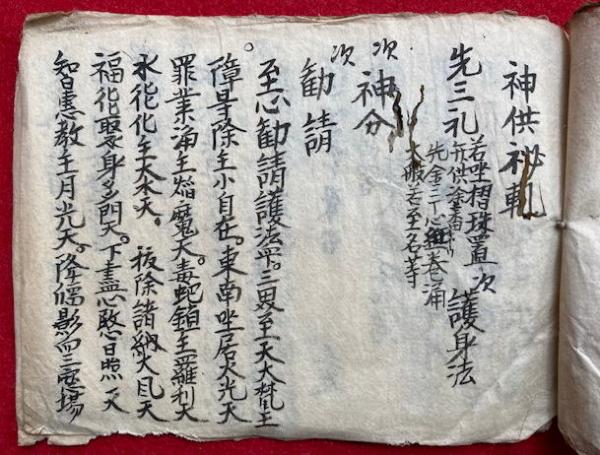 神供秘軌
先三礼 若坐摺珠置 次 護身法
先金二丁心経一巻誦
大般若至名等
次 神分
次 勧請
至心勧請護法 三界主天大梵王
障导除主小自在。東南坐居火光天
罪業 主焔魔天。毒蛇鎖主羅刹天
水能化主大水天。 抜除諸 大風天
福能聚身多門天。下盡心愍日照天
智恵教主月光天。降臨影向三密場